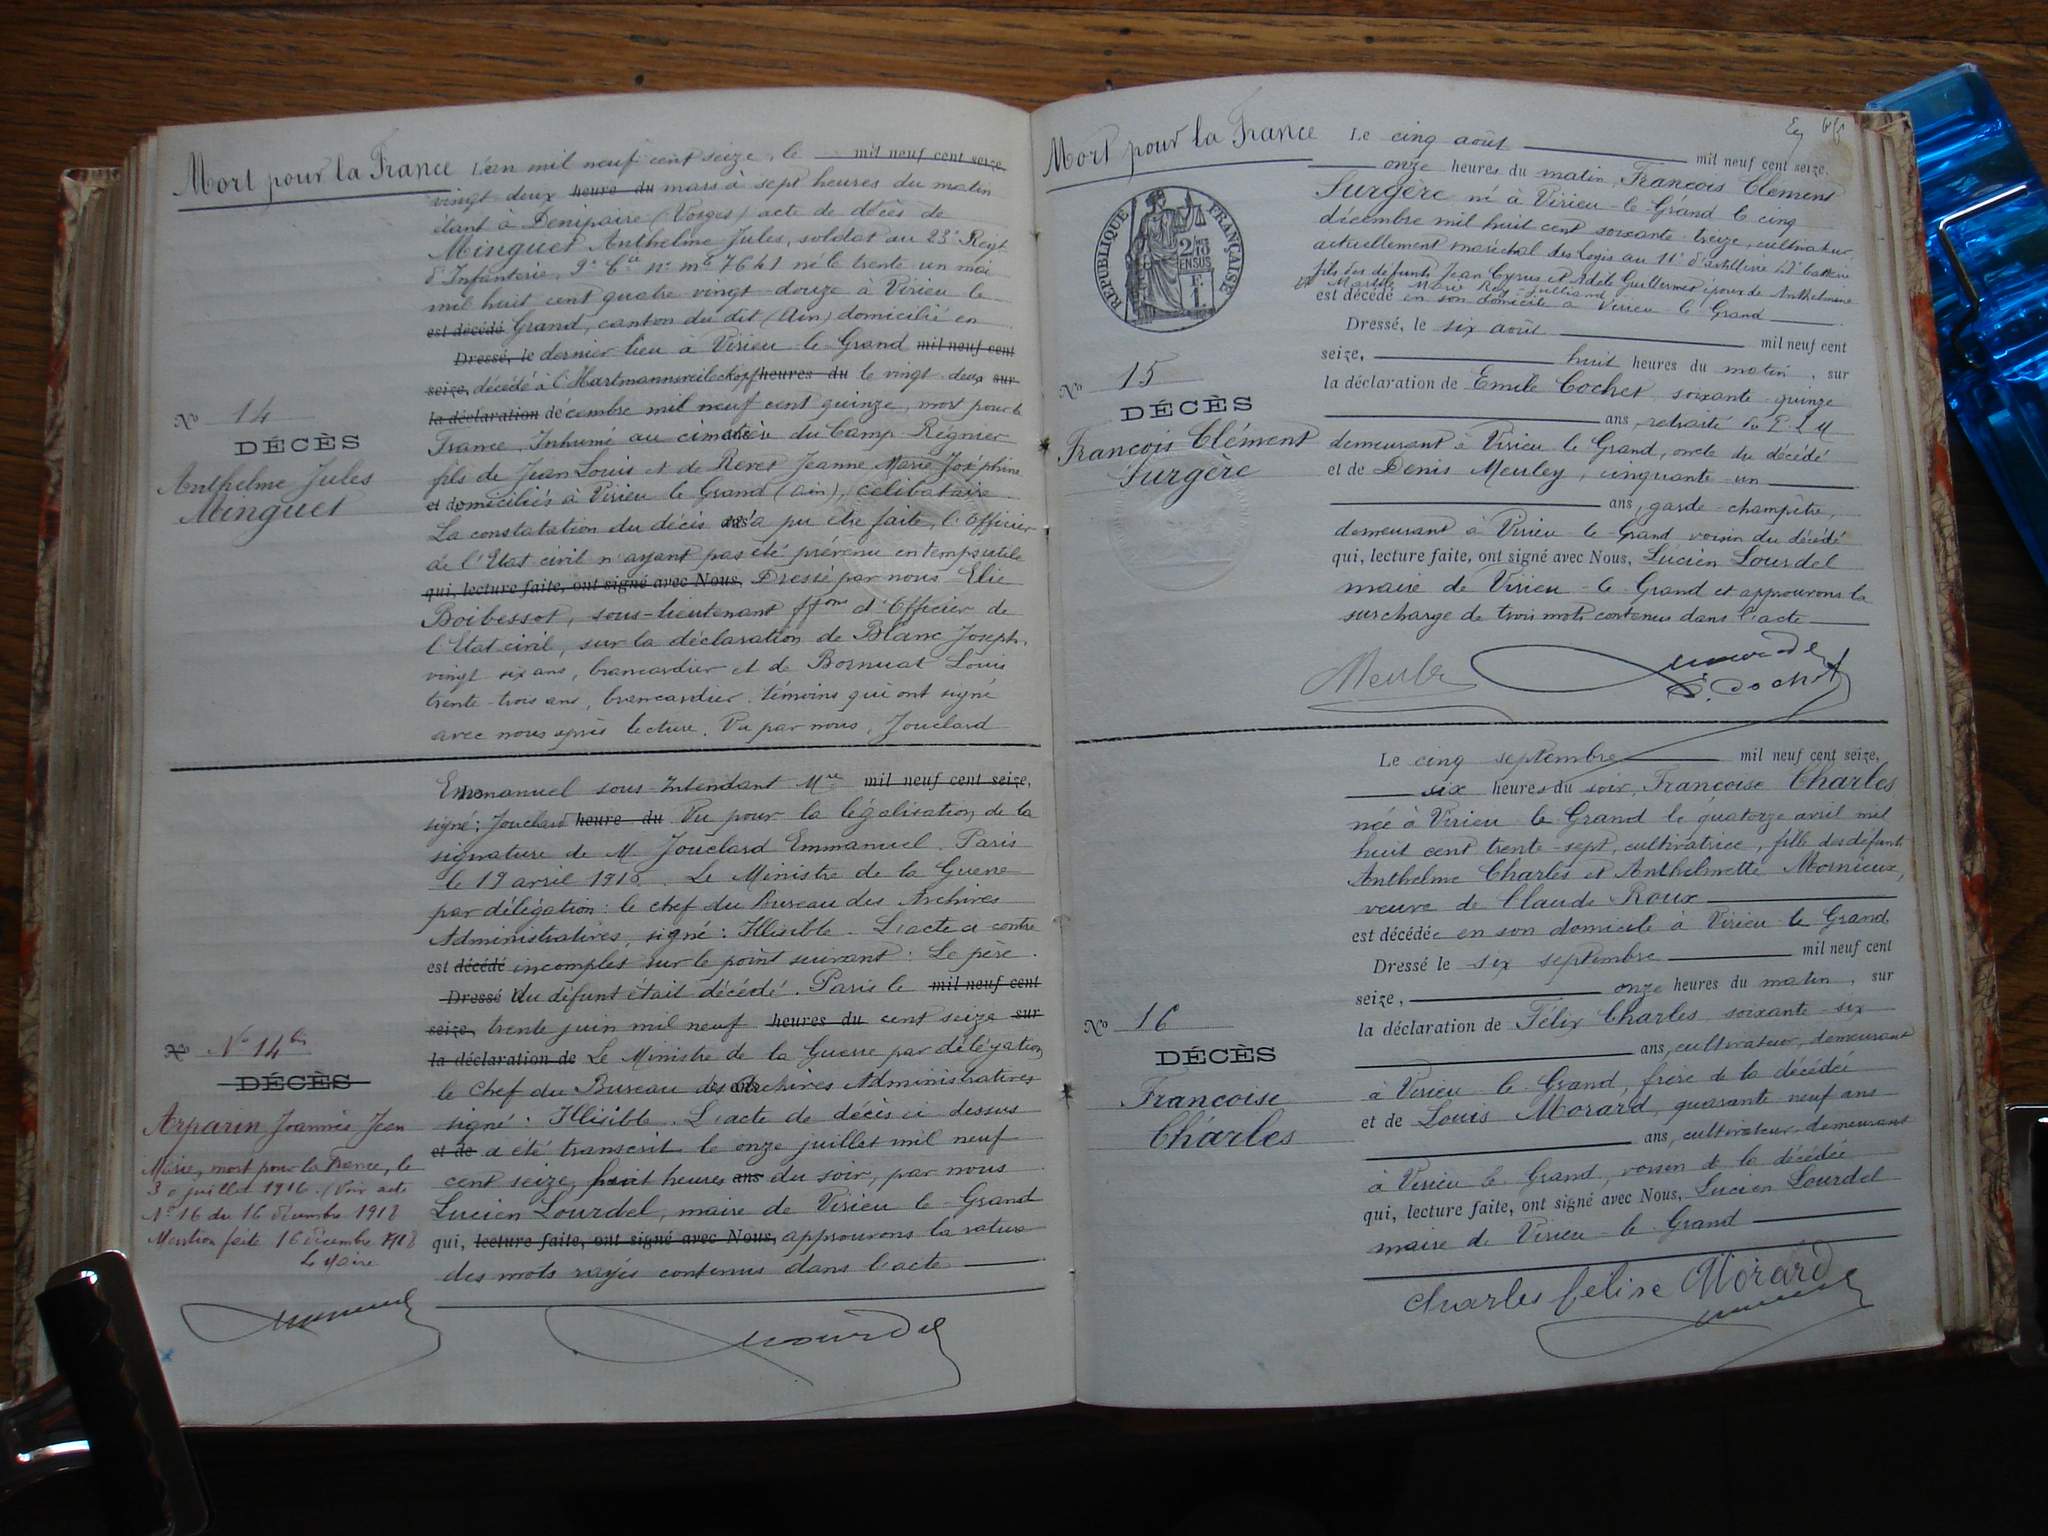 Mort pour la France
L'an mil neuf cent seize, le mil neuf cent seize,
vingt deux heure du mars à sept heures du matin
étant à Denipaire (Vosges) acte de décès de
Minguet Anthelme Jules, soldat au 23e Regt
d'Infanterie, 9e Cie No mle 7641 né le trente un mai
mil huit cent quatre vingt douze à Virieu le
est décédé Grand, canton du dit (Ain) domicilié en
Dressé, le dernier lieu à Virieu le Grand mil neuf cent
seize, décédé à l'Hartmannsweilerkopf heures du le vingt deux sur
la déclaration décembre mil neuf cent quinze, mort pour la
France, Inhumé au cimetière du Camp Régnier
fils de Jean Louis et de Revet Jeanne Marie Joséphine
et domiciliés à Virieu le Grand (Ain), célibataire
La constatation du décès n'a pu être faite, l'Officier
de l'Etat civil n'ayant pas été prévenu en temps utile
qui, lecture faite, ont signé avec Nous, Dressé par nous Elie
Boibessot, sous-lieutenant ffons d'Officier de
l'Etat civil, sur la déclaration de Blanc Joseph,
vingt six ans, brancardier et de Bornuat Louis
trente-trois ans, brancardier, témoins qui ont signé
avec nous après lecture. Vu par nous, Jouclard
No 14
DÉCÈS
Anthelme Jules
Minguet
Emmanuel sous-Intendant Mre mil neuf cent seize,
signé: Jouclard heure du Vu pour la légalisation de la
signature de M. Jouclard Emmanuel. Paris
le 19 avril 1916. Le Ministre de la Guerre
par délégation: le chef du Bureau des Archives
Administratives, signé: Illisible. L'acte ci contre
est décédé incomplet sur le point suivant: Le père
Dressé du défunt était décédé. Paris le mil neuf cent
seize, trente juin mil neuf heures du cent seize sur
la déclaration de Le Ministre de la Guerre par délégation
le Chef du Bureau des Archives Administratives
signé: Illisible. L'acte de décès ci dessus
et de a été transcrit le onze juillet mil neuf
cent seize, huit heures ans du soir, par nous
Lucien Lourdel, maire de Virieu le Grand
qui, lecture faite, ont signé avec Nous, approuvons la rature
des mots rayés contenus dans l'acte
No No 14 bis
DÉCÈS
Arparin Joannès Jean
Marie, mort pour la France, le
30 juillet 1916. (Voir acte
No 16 du 16 décembre 1918
Mention faite 16 décembre 1918
Le Maire
Mort pour la France
Le cinq août mil neuf cent seize,
onze heures du matin, François Clément
Surgère né à Virieu-le-Grand le cinq
décembre mil huit cent soixante-treize, cultivateur,
actuellement maréchal des logis au 11e d'artillerie 17e batterie
fils des défunts Jean Cyrus et Adèle Guillermet époux de Anthelmine
Marthe Marie Rey-Julliand
est décédé en son domicile à Virieu-le-Grand
Dressé, le six août mil neuf cent
seize, huit heures du matin, sur
la déclaration de Emile Cochet, soixante-quinze
ans, retraité du P.L.M
demeurant à Virieu le Grand, oncle du décédé
et de Denis Meuley, cinquante-un
ans, garde-champêtre,
demeurant à Virieu-le-Grand voisin du décédé
qui, lecture faite, ont signé avec Nous, Lucien Lourdel
maire de Virieu-le-Grand et approuvons la
surcharge de trois mots contenus dans l'acte
RÉPUBLIQUE FRANÇAISE
No 15
DÉCÈS
François Clément
Surgère
E. Cochet
Le cinq septembre mil neuf cent seize,
six heures du soir, Francoise Charles
née à Virieu le Grand le quatorze avril mil
huit cent trente-sept, cultivatrice, fille des défunts
Anthelme Charles et Anthelmette Mornieux,
veuve de Claude Roux
est décédée en son domicile à Virieu le Grand,
Dressé le six septembre mil neuf cent
seize, onze heures du matin, sur
la déclaration de Félix Charles, soixante-six
ans, cultivateur, demeurant
à Virieu-le-Grand, frère de la décédée
et de Louis Morard, quarante neuf ans
ans, cultivateur demeurant
à Virieu le Grand, voisin de la décédée
qui, lecture faite, ont signé avec Nous, Lucien Lourdel
maire de Virieu-le-Grand
No 16
DÉCÈS
Francoise
Charles
Charles félise Morard